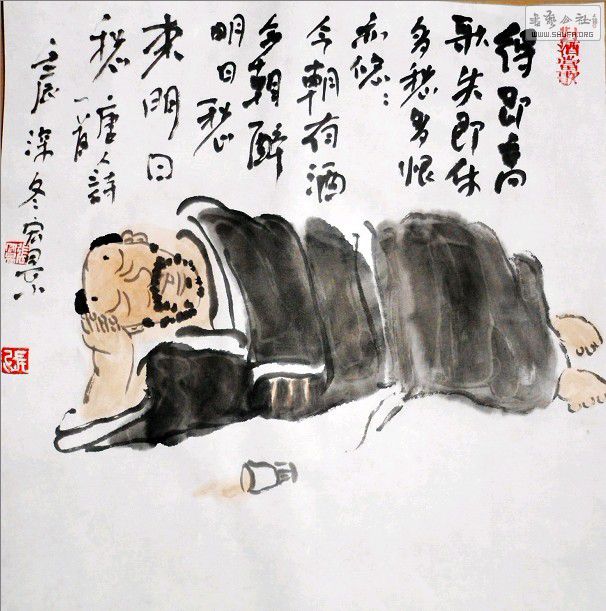 得即高
歌失即休
多愁多恨
亦悠〻
今朝有酒
今朝醉
明日愁
来明日
愁唐人詩
一首
壬辰深冬宏景
酒當歌
书艺公社
WWW.SHUFA.ORG